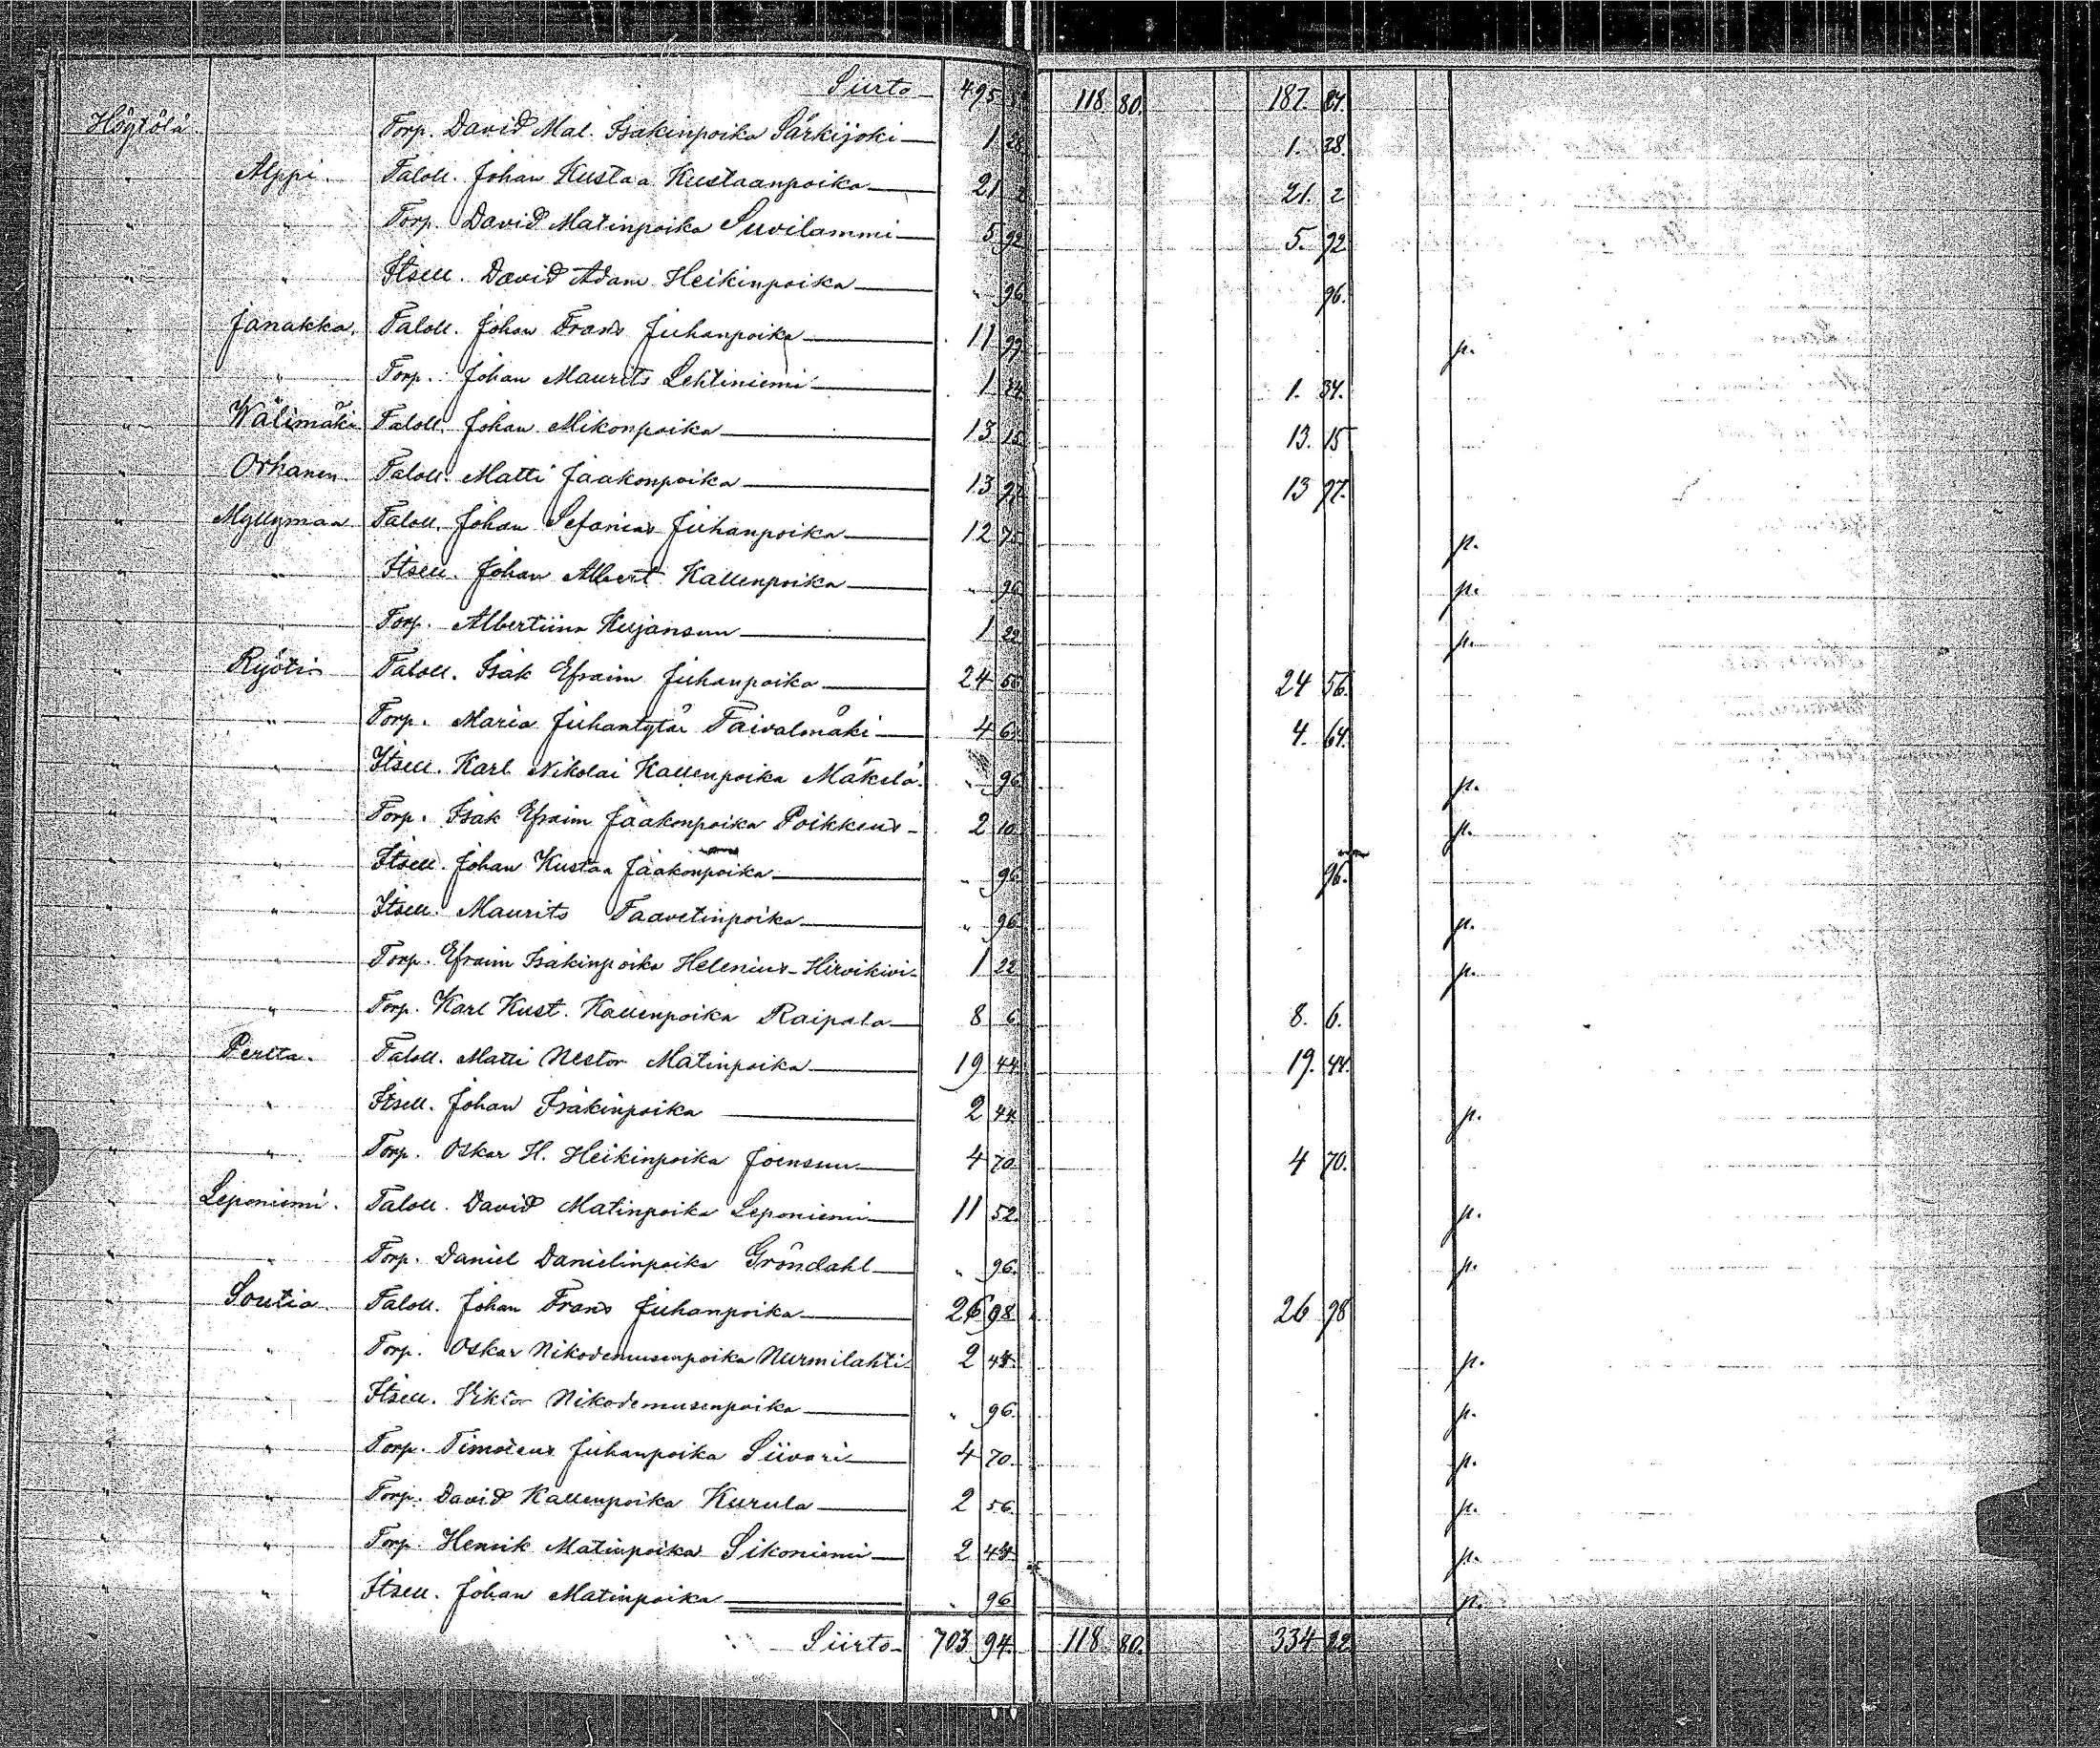 Siirto 495 118 80. 187.
Höytölä Torp. David Mal. Isakinpoika Särkijoki 1 28 1. 28.
" Alppi. Taloll. Johan Kustaa Kustaanpoika 21 2 21. 2
" " Torp. David Matinpoika Suvilammi 5 92 5. 92
" " Itsell. David Adam Heikinpoika " 96 96.
" Janakka. Taloll. Johan Frans Juhanpoika 11 p.
" " Torp. Johan Maurits Lehtiniemi 1 34 1. 34.
" Wälimäki Taloll. Johan Mikonpoika 13 15 13. 15
" Orhanen. Taloll. Matti Jaakonpoika 13 97 13 97.
" Myllymaa Taloll. Johan Sefanias Juhanpoika 12 75 p.
" " Itsell. Johan Albert Kallenpoika " 96 p.
" " Torp. Albertiina Kujansuu 1 22 p.
" Ryöti Taloll. Isak Efraim Juhanpoika 24 56 24 56.
" " Torp. Maria Juhantytär Taivalmäki 4 64 4. 64.
" " Itsell. Karl Nikolai Kallenpoika Mäkelä. " 96 p.
" " Torp. Isak Efraim Jaakonpoika Poikkeus 2 10 p.
" " Itsell. Johan Kustaa Jaakonpoika " 96 96.
" " Itsell. Maurits Taavetinpoika " 96 p.
" " Torp. Efraim Isakinpoika Helenius-Hirvikivi 1 22 p.
" " Torp. Karl Kust. Kallenpoika Raipala 8 6 8. 6.
" Perlta. Taloll. Matti Nestor Matinpoika 19 44 19. 44.
" " Itsell. Johan Isakinpoika 2 44 p.
" " Torp. Oskar H. Heikinpoika Joensuu 4 70 4 70.
" Leponiemi. Taloll. David Matinpoika Leponiemi 11 52. p.
" " Torp. Daniel Danielinpoika Gröndahl " 96. p.
" Soutia. Taloll. Johan Frans Juhanpoika 26 98 26 98
" " Torp. Oskar Nikodemusenpoika Nurmilahti 2 44. p.
" " Itsell. Viktor Nikodemusenpoika " 96. p.
" " Torp. Timoteus Juhanpoika Siivari 4 70. p.
" " Torp. David Kallenpoika Kurula 2 56. p.
" " Torp. Henrik Matinpoika Sikoniemi 2 44. p.
" " Itsell. Johan Matinpoika " 96 p.
Siirto 703 94. 118 80. 334 22